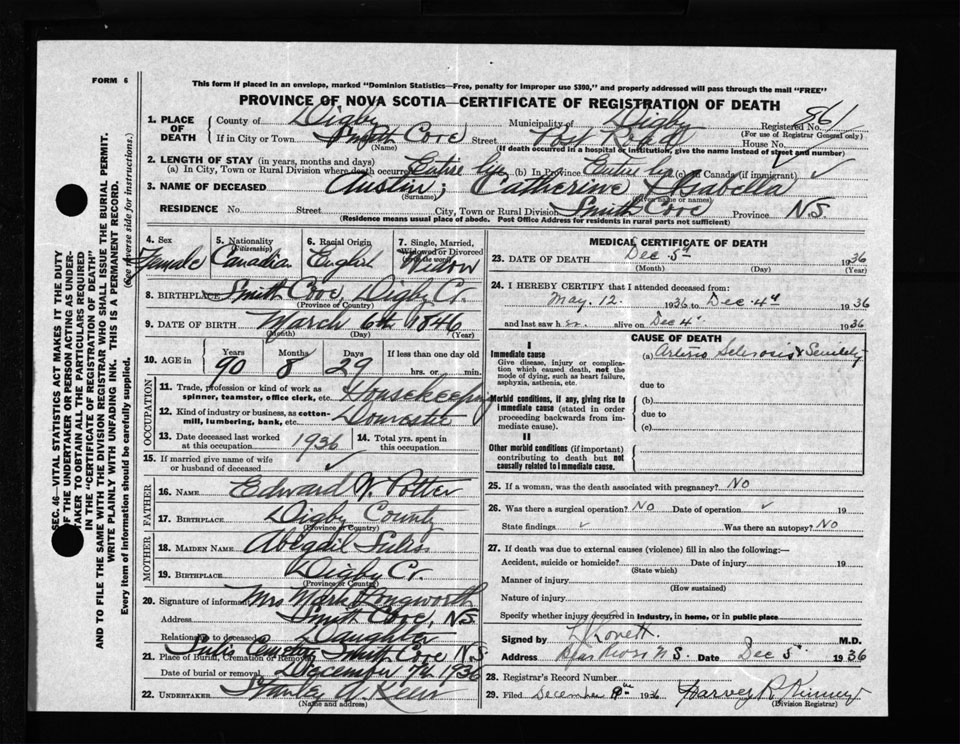 FORM 6
This form if placed in an envelope, marked "Dominion Statistics—Free, penalty for improper use $300," and properly addressed will pass through the mail "FREE"
PROVINCE OF NOVA SCOTIA—CERTIFICATE OF REGISTRATION OF DEATH
1. PLACE OF DEATH County of Digby Municipality of Digby Registered No. 861
(For use of Registrar General only)
If in City or Town Smith Cove Street House No.
(Name) (If death occurred in a hospital or institution, give the name instead of street and number)
2. LENGTH OF STAY (in years, months and days)
(a) In City, Town or Rural Division where death occurred Entire life (b) In Province Entire life (c) In Canada (if immigrant) ✓
3. NAME OF DECEASED Austin; Catherine Isabella
(Surname) (Given name or names)
RESIDENCE No. Street City, Town or Rural Division Smith Cove Province N.S.
(Residence means usual place of abode. Post Office Address for residents in rural parts not sufficient)
SEC. 46—VITAL STATISTICS ACT MAKES IT THE DUTY
OF THE UNDERTAKER OR PERSON ACTING AS UNDER-
TAKER TO OBTAIN ALL THE PARTICULARS REQUIRED
IN THE "CERTIFICATE OF REGISTRATION OF DEATH"
AND TO FILE THE SAME WITH THE DIVISION REGISTRAR WHO SHALL ISSUE THE BURIAL PERMIT.
WRITE PLAINLY WITH UNFADING INK. THIS IS A PERMANENT RECORD.
Every item of information should be carefully supplied. (See reverse side for instructions.)
4. Sex Female
5. Nationality (Citizenship) Canadian
6. Racial Origin English
7. Single, Married, Widowed or Divorced Widow
8. BIRTHPLACE Smith Cove Digby Co.
(Province or Country)
9. DATE OF BIRTH March 6th 1846
(Month) (Day) (Year)
10. AGE in Years 90 Months 8 Days 29 If less than one day old hrs. or min.
OCCUPATION
11. Trade, profession or kind of work as spinner, teamster, office clerk, etc. Housekeeping
12. Kind of industry or business, as cotton-mill, lumbering, bank, etc. Domestic
13. Date deceased last worked at this occupation 1936 14. Total yrs. spent in this occupation
15. If married give name of wife or husband of deceased ✓
FATHER
16. NAME Edward W. Potter
17. BIRTHPLACE Digby County
(Province or Country)
MOTHER
18. MAIDEN NAME Abigail Sulis
19. BIRTHPLACE Digby Co.
(Province or Country)
20. Signature of informant Mrs Mark Longworth
Address Smith Cove, N.S.
Relationship to deceased Daughter
21. Place of Burial, Cremation or Removal Sulis Cemetery Smith Cove N.S.
Date of burial or removal December 7th 1936
22. UNDERTAKER
(Name and address)
MEDICAL CERTIFICATE OF DEATH
23. DATE OF DEATH Dec 5th 1936
(Month) (Day) (Year)
24. I HEREBY CERTIFY that I attended deceased from:
May 12 1936 to Dec 4th 1936
and last saw her alive on Dec 4th 1936
CAUSE OF DEATH
I
Immediate cause
Give disease, injury or complication which caused death, not the mode of dying, such as heart failure, asphyxia, asthenia, etc.
(a) Arterio Sclerosis & Senility
due to
Morbid conditions, if any, giving rise to immediate cause (stated in order proceeding backwards from immediate cause).
(b)
due to
(c)
II
Other morbid conditions (if important) contributing to death but not causally related to immediate cause.
25. If a woman, was the death associated with pregnancy? No
26. Was there a surgical operation? No Date of operation ✓ 19
State findings ✓ Was there an autopsy? No
27. If death was due to external causes (violence) fill in also the following:—
Accident, suicide or homicide? Date of injury 19
(State which)
Manner of injury
(How sustained)
Nature of injury
Specify whether injury occurred in industry, in home, or in public place
Signed by Lovett M.D.
Address Bear River N.S. Date Dec 5 1936
28. Registrar's Record Number
29. Filed December 1936 Harvey R.
(Division Registrar)